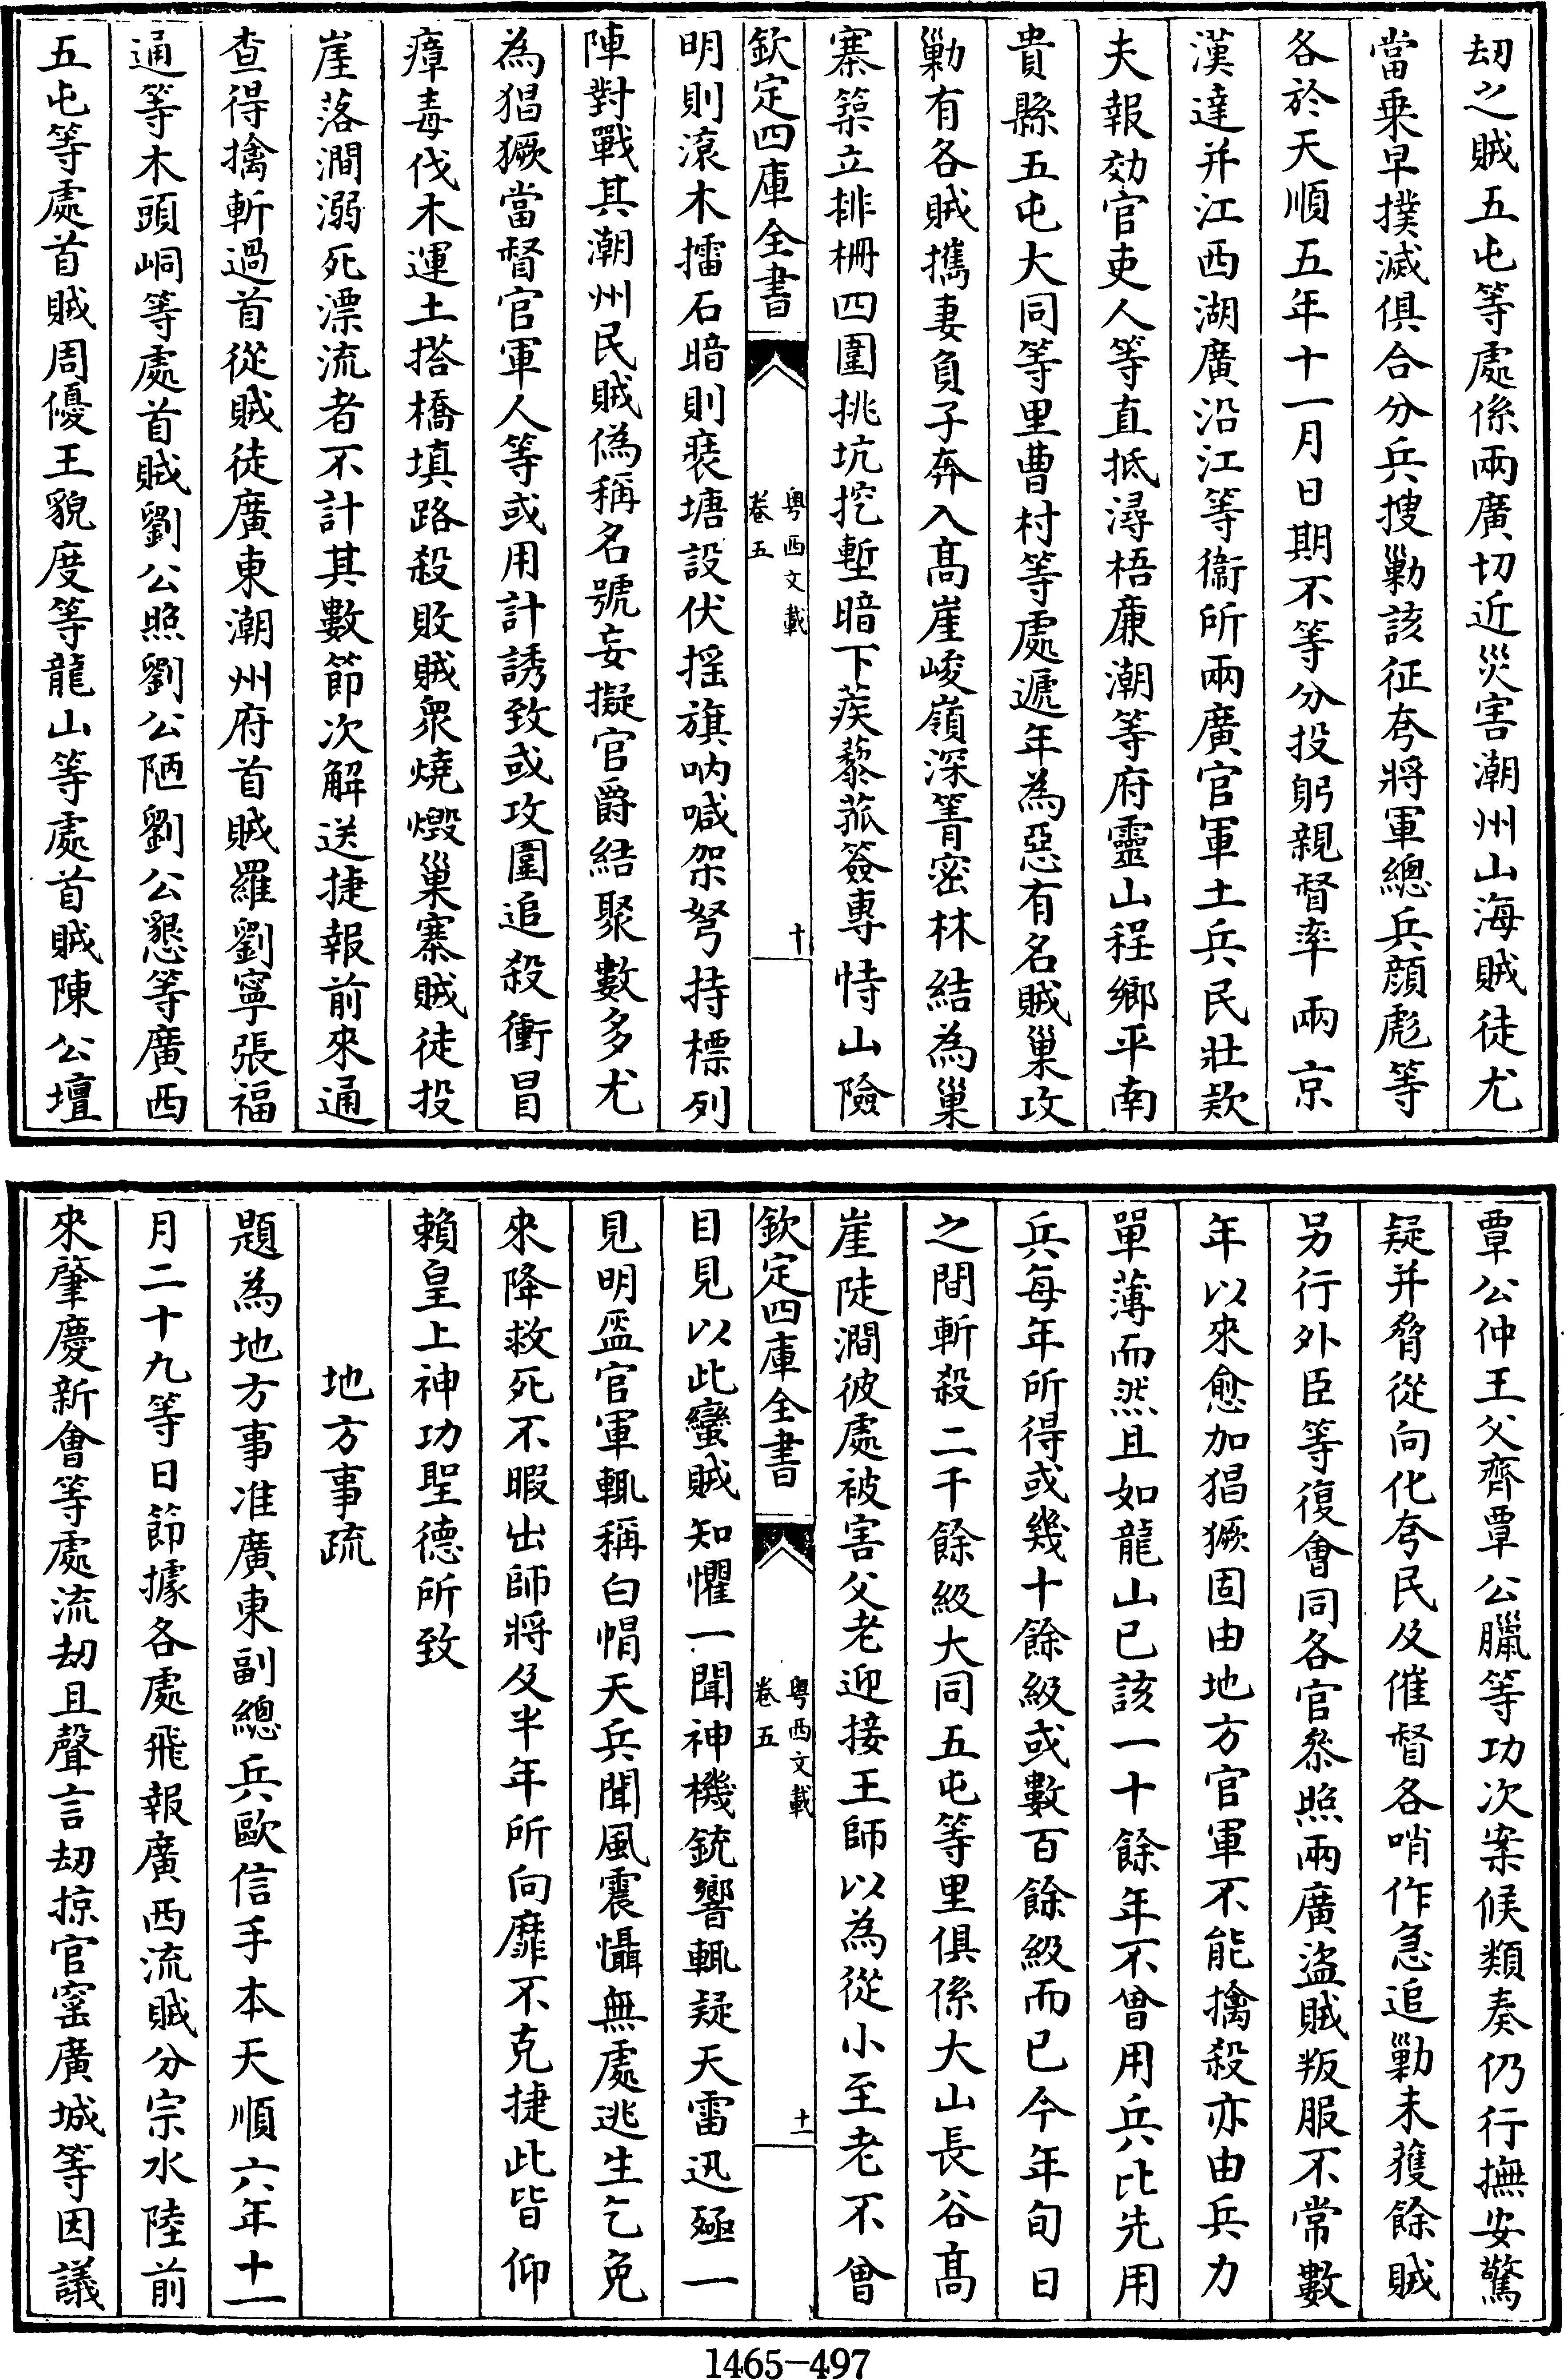 刼之賊五屯等處係兩廣切近災害潮州山海賊徒尤
當乗早撲滅俱合分兵搜勦該征夸將軍總兵顔彪等
各於天順五年十一月日期不等分投躬親督率兩京
漢達并江西湖廣沿江等衛所兩廣官軍土兵民壯款
夫報効官吏人等直抵潯梧廉潮等府靈山程鄉平南
貴縣五屯大同等里曹村等處遞年為惡有名賊巢攻
勦有各賊攜妻負子奔入髙崖峻嶺深箐密林結為巢
寨築立排柵四圍挑坑挖塹暗下蒺藜菰簽專恃山險
欽定四庫全書
粤西文載
卷五
十
明則滾木擂石暗則裝塘設伏摇旗吶喊架弩持標列
陣對戰其潮州民賊偽稱名號妄擬官爵結聚數多尤
為猖獗當督官軍人等或用計誘致或攻圍追殺衝冒
瘴毒伐木運土搭橋填路殺敗賊衆燒燬巢寨賊徒投
崖落澗溺死漂流者不計其數節次解送捷報前來通
查得擒斬過首從賊徒廣東潮州府首賊羅劉寧張福
通等木頭峒等處首賊劉公照劉公陋劉公懇等廣西
五屯等處首賊周優王貌度等龍山等處首賊陳公壇
覃公仲王父齊覃公臘等功次案候類奏仍行撫安驚
疑并脅從向化夸民及催督各哨作急追勦未獲餘賊
另行外臣等復會同各官叅照兩廣盗賊叛服不常數
年以來愈加猖獗固由地方官軍不能擒殺亦由兵力
單薄而然且如龍山已該一十餘年不曽用兵比先用
兵每年所得或幾十餘級或數百餘級而已今年旬日
之間斬殺二千餘級大同五屯等里俱係大山長谷髙
崖陡澗彼處被害父老迎接王師以為從小至老不曽
欽定四庫全書
粤西文載
卷五
十一
目見以此蠻賊知懼一聞神機銃響輒疑天雷迅殛一
見明盔官軍輒稱白帽天兵聞風震懾無處逃生乞免
來降救死不暇出師將及半年所向靡不克捷此皆仰
賴皇上神功聖德所致
地方事疏
題為地方事准廣東副總兵歐信手本天順六年十一
月二十九等日節據各處飛報廣西流賊分宗水陸前
來肇慶新會等處流刼且聲言刼掠官窰廣城等因議
1465-497